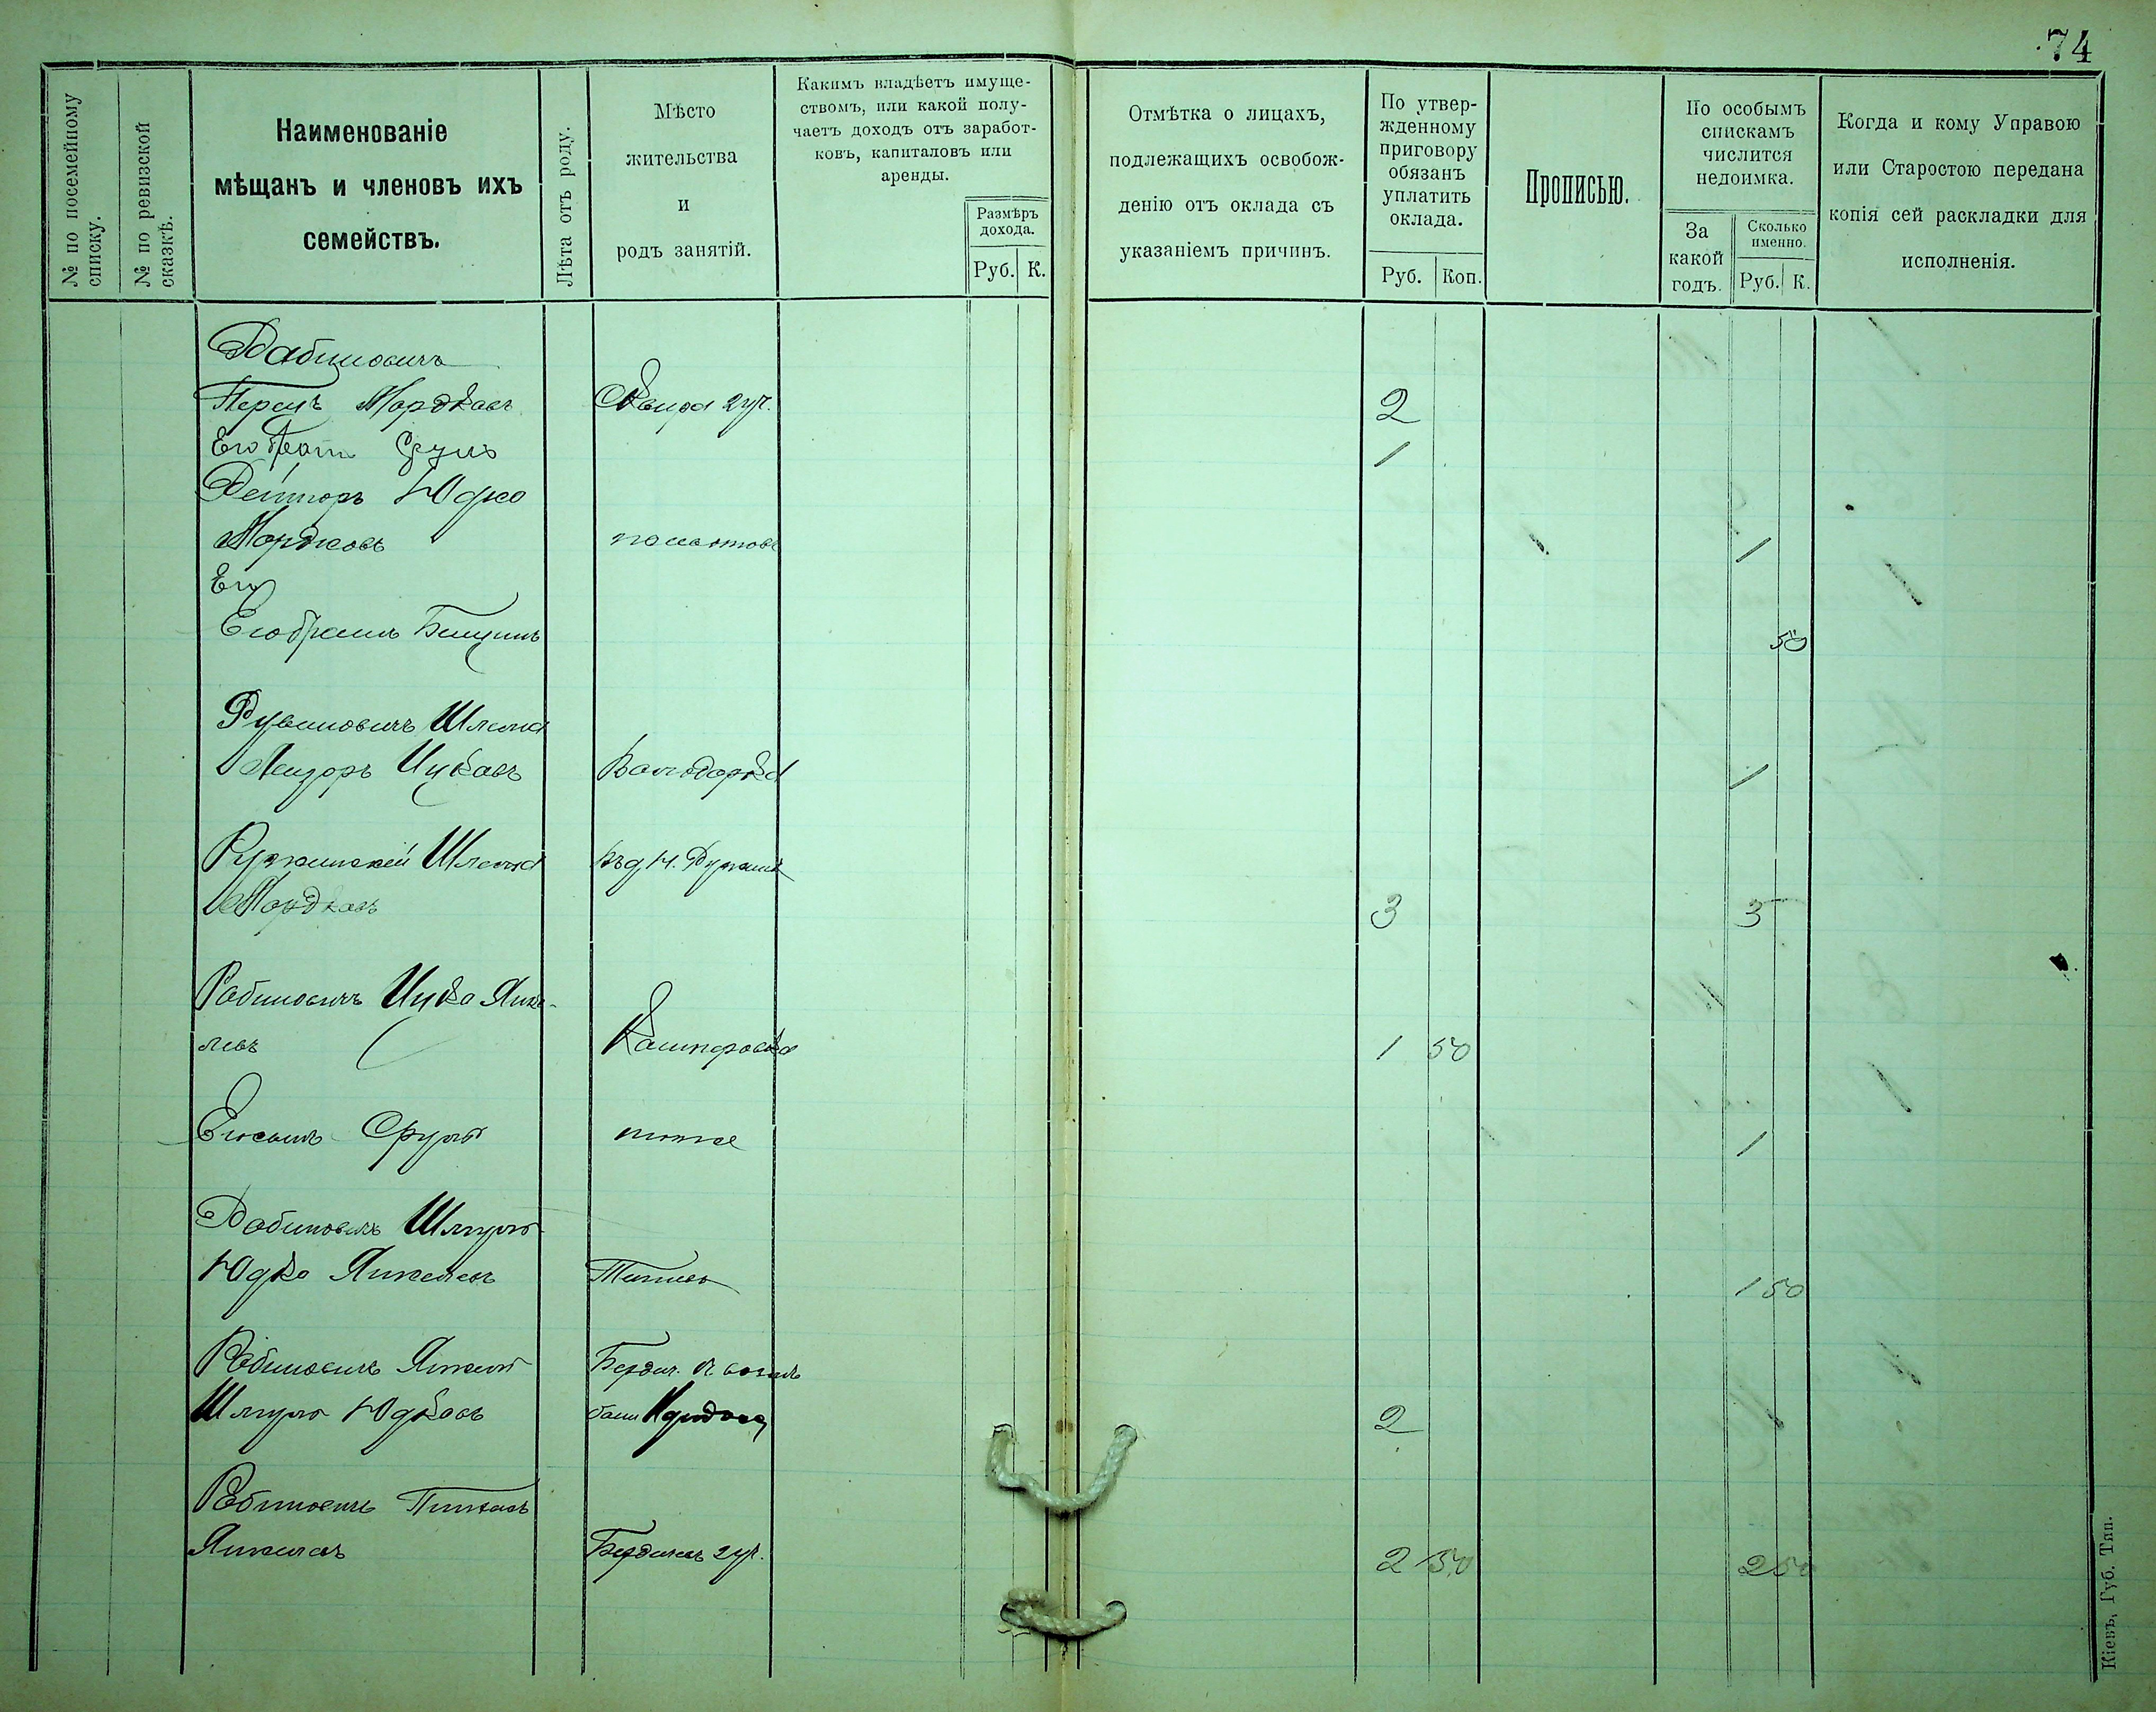 74
№ по посемейному списку.
№ по ревизской сказкѣ.
Наименованіе
мѣщанъ и членовъ ихъ
семействъ.
Лѣта отъ роду.
Мѣсто
жительства
и
родъ занятій.
Какимъ владѣетъ имуще-
ствомъ, или какой полу-
чаетъ доходъ отъ заработ-
ковъ, капиталовъ или
аренды.
Размѣръ
дохода.
Руб. К.
Отмѣтка о лицахъ,
подлежащихъ освобож-
денію отъ оклада съ
указаніемъ причинъ.
По утвер-
жденному
приговору
обязанъ
уплатить
оклада.
Руб. Коп.
Прописью.
По особымъ
спискамъ
числится
недоимка.
За
какой
годъ.
Сколько
именно.
Руб. К.
Когда и кому Управою
или Старостою передана
копія сей раскладки для
исполненія.
Рабиновичъ
Перецъ Мордковъ Сквира 2 уч. 2
Его братъ Сруль 1
Юдко
Мордковъ 1
Его
Его братъ 50
Рувиновичъ Шлема
Лейзоръ Ицковъ Володарка 1
Ружинскій Шлема
Мордковъ 3 3
Рабиновичъ Ицко Янке-
левъ 1 50
Его сынъ Сруль тоже 1
Рабиновичъ Шмуль
Юдко Янкелевъ 1 50
Рабиновичъ Янкель Бердич.
Шмуль Юдковъ 2
Рабиновичъ Пинхасъ
Янкелевъ Бердичевъ 2 уч. 2 50 2 50
Кіевъ, Губ. Тип.